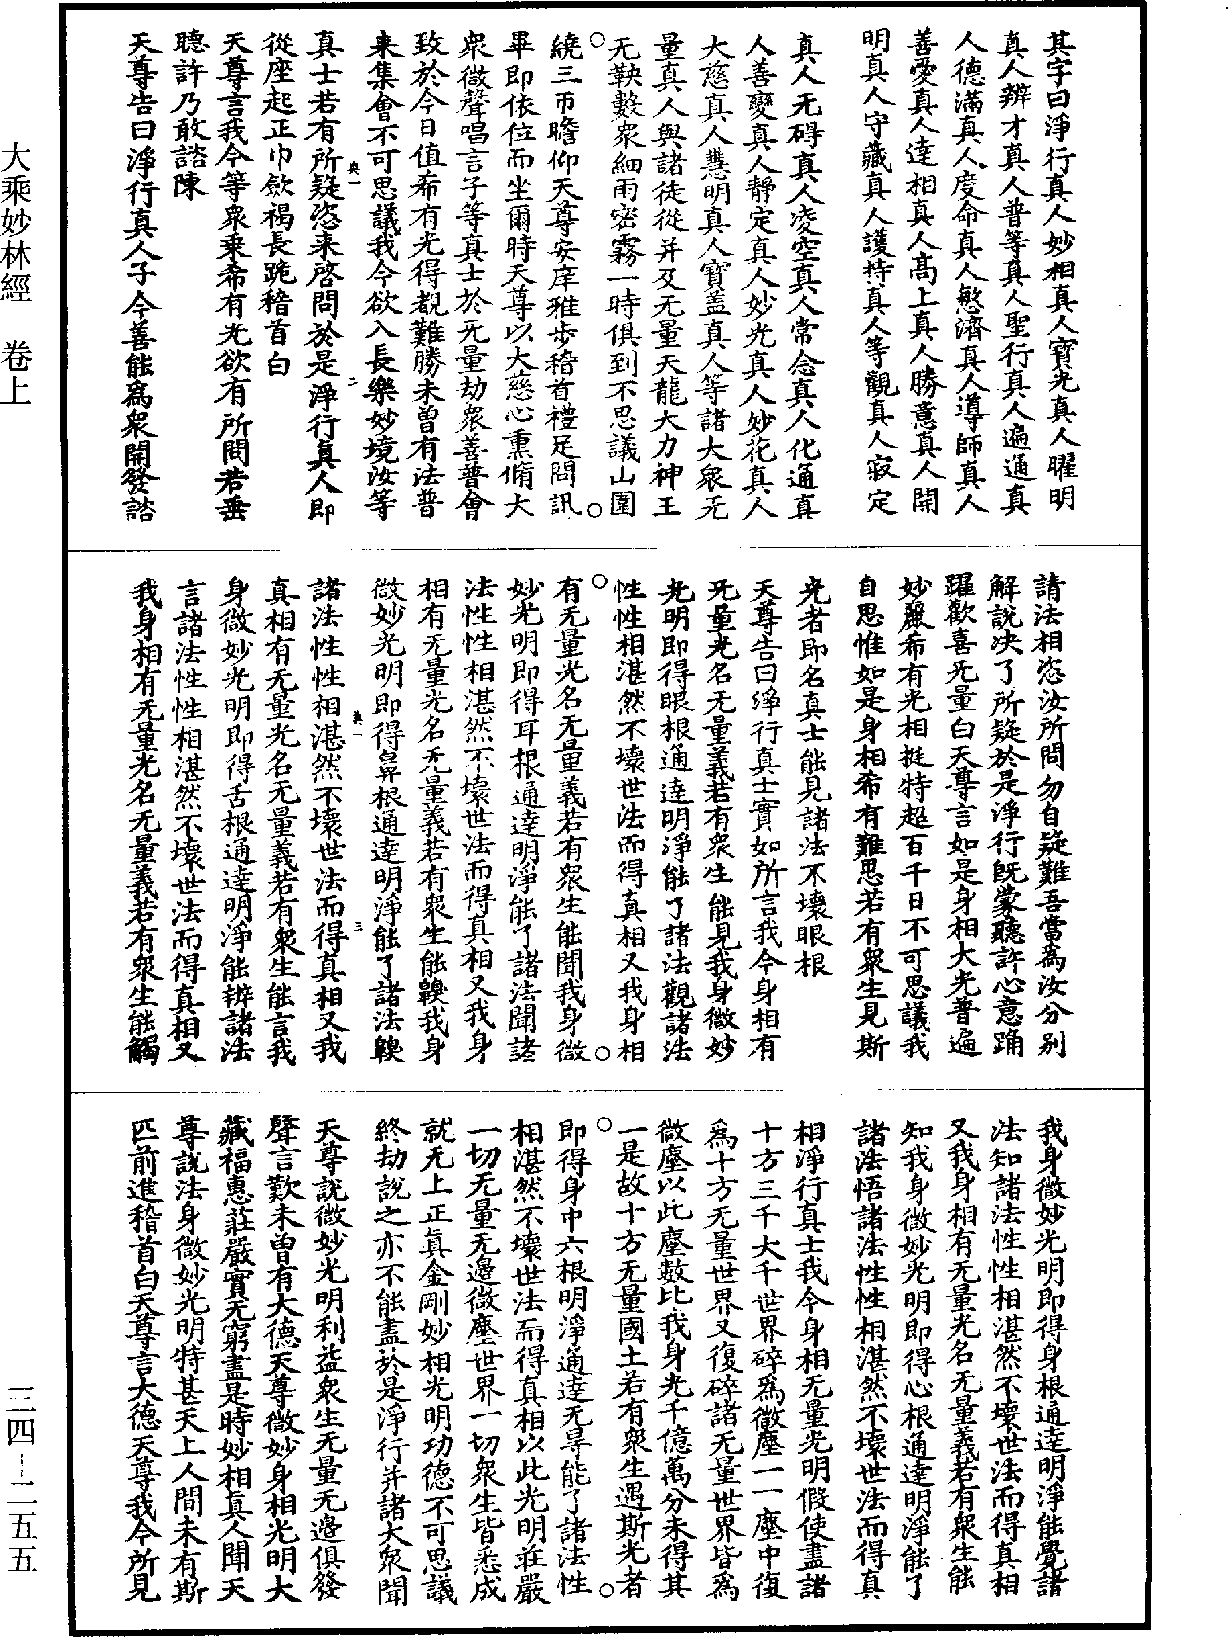 大乘妙林經　卷上
其字曰淨行真人妙相真人寶光真人曜明
真人辨才真人普等真人聖行真人遍通真
人德滿真人度命真人敏濟真人導師真人
善愛真人達相真人高上真人勝意真人開
明真人守藏真人護持真人等觀真人寂定
真人无礙真人凌空真人常念真人化通真
人善變真人靜定真人妙光真人妙花真人
大慈真人慧明真人寶盖真人等諸大衆无
量真人與諸徒從并及无量天龍大力神王
无鞅數衆細雨密霧一時俱到不思議山圍
繞三帀瞻仰天尊安庠雅步稽首禮足問訊
畢即依位而坐爾時天尊以大慈心熏脩大
衆微聲唱言子等真士於无量劫衆善普會
致於今日值希有光得覩難勝未曾有法普
来集會不可思議我今欲入長樂妙境汝等
真士若有所疑恣来啓問於是淨行真人即
從座起正巾斂褐長跪稽首白
天尊言我今等衆乘希有光欲有所問若垂
聽許乃敢諮陳
天尊告曰淨行真人子今善能為衆開發諮
請法相恣汝所問勿自疑難吾當為汝分别
解說决了所疑於是淨行既蒙聽許心意踊
躍歡喜无量白天尊言如是身相大光普遍
妙嚴希有光相挺特超百千日不可思議我
自思惟如是身相希有難思若有衆生見斯
光者即名真士能見諸法不壞眼根
天尊告曰淨行真士實如所言我今身相有
无量光名无量義若有衆生能見我身微妙
光明即得眼根通達明淨能了諸法觀諸法
性性相湛然不壞世法而得真相又我身相
有无量光名无量義若有衆生能聞我身微
妙光明即得耳根通達明淨能了諸法聞諸
法性性相湛然不壞世法而得真相又我身
相有无量光名无量義若有衆生能齅我身
微妙光明即得鼻根通達明淨能了諸法齅
諸法性性相湛然不壞世法而得真相又我
真相有无量光名无量義若有衆生能言我
身微妙光明即得舌根通達明淨能辨諸法
言諸法性性相湛然不壞世法而得真相又
我身相有无量光名无量義若有衆生能觸
我身微妙光明即得身根通達明淨能覺諸
法知諸法性性相湛然不壞世法而得真相
又我身相有无量光名无量義若有衆生能
知我身微妙光明即得心根通達明淨能了
諸法悟諸法性性相湛然不壞世法而得真
相淨行真士我今身相无量光明假使盡諸
十方三千大千世界碎為微塵一一塵中復
為十方无量世界又復碎諸无量世界皆為
微塵以此塵數比我身光千億萬分未得其
一是故十方无量國土若有衆生遇斯光者
即得身中六根明淨通達无㝵能了諸法性
相湛然不壞世法而得真相以此光明莊嚴
一切无量无邊微塵世界一切衆生皆悉成
就无上正真金剛妙相光明功德不可思議
終劫說之亦不能盡於是淨行并諸大衆聞
天尊說微妙光明利益衆生无量无邊俱發
聲言歎未曾有大德天尊微妙身相光明大
藏福惠莊嚴實无窮盡是時妙相真人聞天
尊說法身微妙光明特甚天上人間未有斯
匹前進稽首白天尊言大德天尊我今所見
三四-二五五